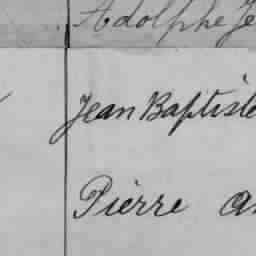 Adolphe Je
Jean Baptiste
Pierre